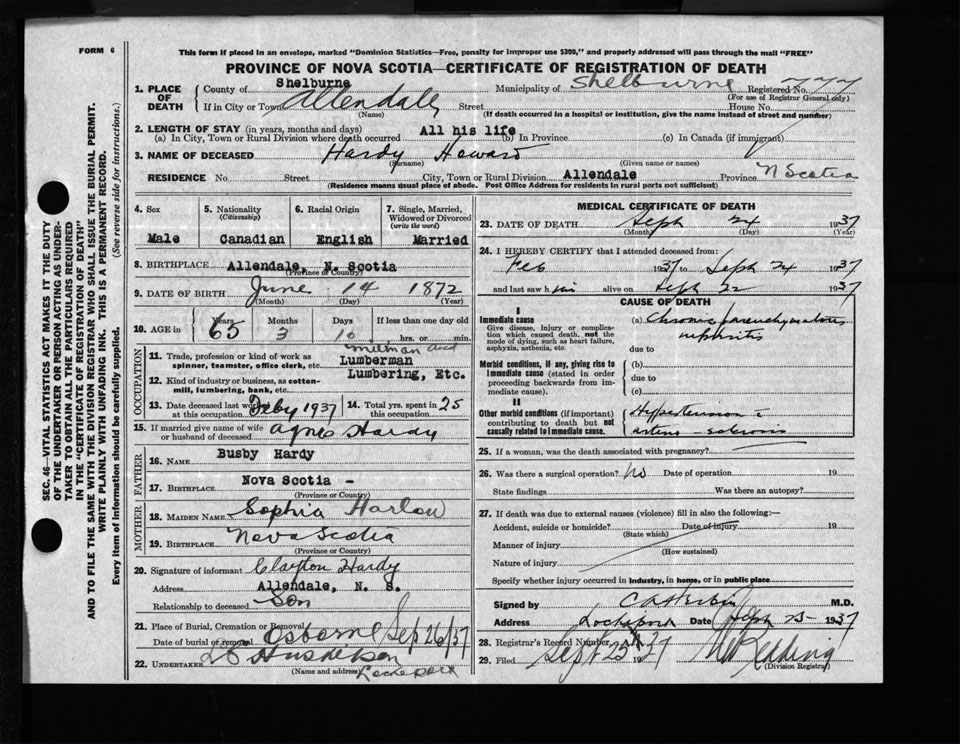 FORM 6
This form if placed in an envelope, marked "Dominion Statistics—Free, penalty for improper use $300," and properly addressed will pass through the mail "FREE"
PROVINCE OF NOVA SCOTIA—CERTIFICATE OF REGISTRATION OF DEATH
1. PLACE OF DEATH County of Shelburne Municipality of Shelburne Registered No. 777
(For use of Registrar General only)
If in City or Town Allendale Street House No.
(Name) (If death occurred in a hospital or institution, give the name instead of street and number)
2. LENGTH OF STAY (in years, months and days)
(a) In City, Town or Rural Division where death occurred All his life (b) In Province (c) In Canada (if immigrant)
3. NAME OF DECEASED Hardy Howard
(Surname) (Given name or names)
RESIDENCE No. Street City, Town or Rural Division Allendale Province N Scotia
(Residence means usual place of abode. Post Office Address for residents in rural parts not sufficient)
4. Sex 5. Nationality (Citizenship) 6. Racial Origin 7. Single, Married, Widowed or Divorced (write the word)
Male Canadian English Married
8. BIRTHPLACE Allendale, N. Scotia
(Province or Country)
9. DATE OF BIRTH June 14 1872
(Month) (Day) (Year)
10. AGE in Years Months Days If less than one day old
65 3 10 hrs. or min.
OCCUPATION
11. Trade, profession or kind of work as spinner, teamster, office clerk, etc. millman and Lumberman
12. Kind of industry or business, as cotton-mill, lumbering, bank, etc. Lumbering, Etc.
13. Date deceased last worked at this occupation Feby 1937 14. Total yrs. spent in this occupation 25
15. If married give name of wife or husband of deceased Agnes Hardy
FATHER
16. NAME Busby Hardy
17. BIRTHPLACE Nova Scotia -
(Province or Country)
MOTHER
18. MAIDEN NAME Sophia Harlow
19. BIRTHPLACE Nova Scotia
(Province or Country)
20. Signature of informant Clayton Hardy
Address Allendale, N. S.
Relationship to deceased Son
21. Place of Burial, Cremation or Removal Osborne
Date of burial or removal Sep 26/37
22. UNDERTAKER
(Name and address) Lockeport
MEDICAL CERTIFICATE OF DEATH
23. DATE OF DEATH Sept 24 1937
(Month) (Day) (Year)
24. I HEREBY CERTIFY that I attended deceased from:
Feb 1937 to Sept 24 1937
and last saw him alive on Sept 22 1937
CAUSE OF DEATH
I
Immediate cause (a) Chronic parenchymatous nephritis
Give disease, injury or complication which caused death, not the mode of dying, such as heart failure, asphyxia, asthenia, etc. due to
Morbid conditions, if any, giving rise to immediate cause (stated in order proceeding backwards from immediate cause). (b)
due to
(c)
II
Other morbid conditions (if important) contributing to death but not causally related to immediate cause. Hypertension
arterio-sclerosis
25. If a woman, was the death associated with pregnancy?
26. Was there a surgical operation? no Date of operation 19
State findings Was there an autopsy?
27. If death was due to external causes (violence) fill in also the following:—
Accident, suicide or homicide? Date of injury 19
(State which)
Manner of injury
(How sustained)
Nature of injury
Specify whether injury occurred in industry, in home, or in public place
Signed by M.D.
Address Lockeport Date Sept 25-1937
28. Registrar's Record Number
29. Filed Sept 25 1937 Redding
(Division Registrar)
SEC. 46—VITAL STATISTICS ACT MAKES IT THE DUTY
OF THE UNDERTAKER OR PERSON ACTING AS UNDER-
TAKER TO OBTAIN ALL THE PARTICULARS REQUIRED
IN THE "CERTIFICATE OF REGISTRATION OF DEATH"
AND TO FILE THE SAME WITH THE DIVISION REGISTRAR WHO SHALL ISSUE THE BURIAL PERMIT.
WRITE PLAINLY WITH UNFADING INK. THIS IS A PERMANENT RECORD.
Every item of information should be carefully supplied. (See reverse side for instructions.)